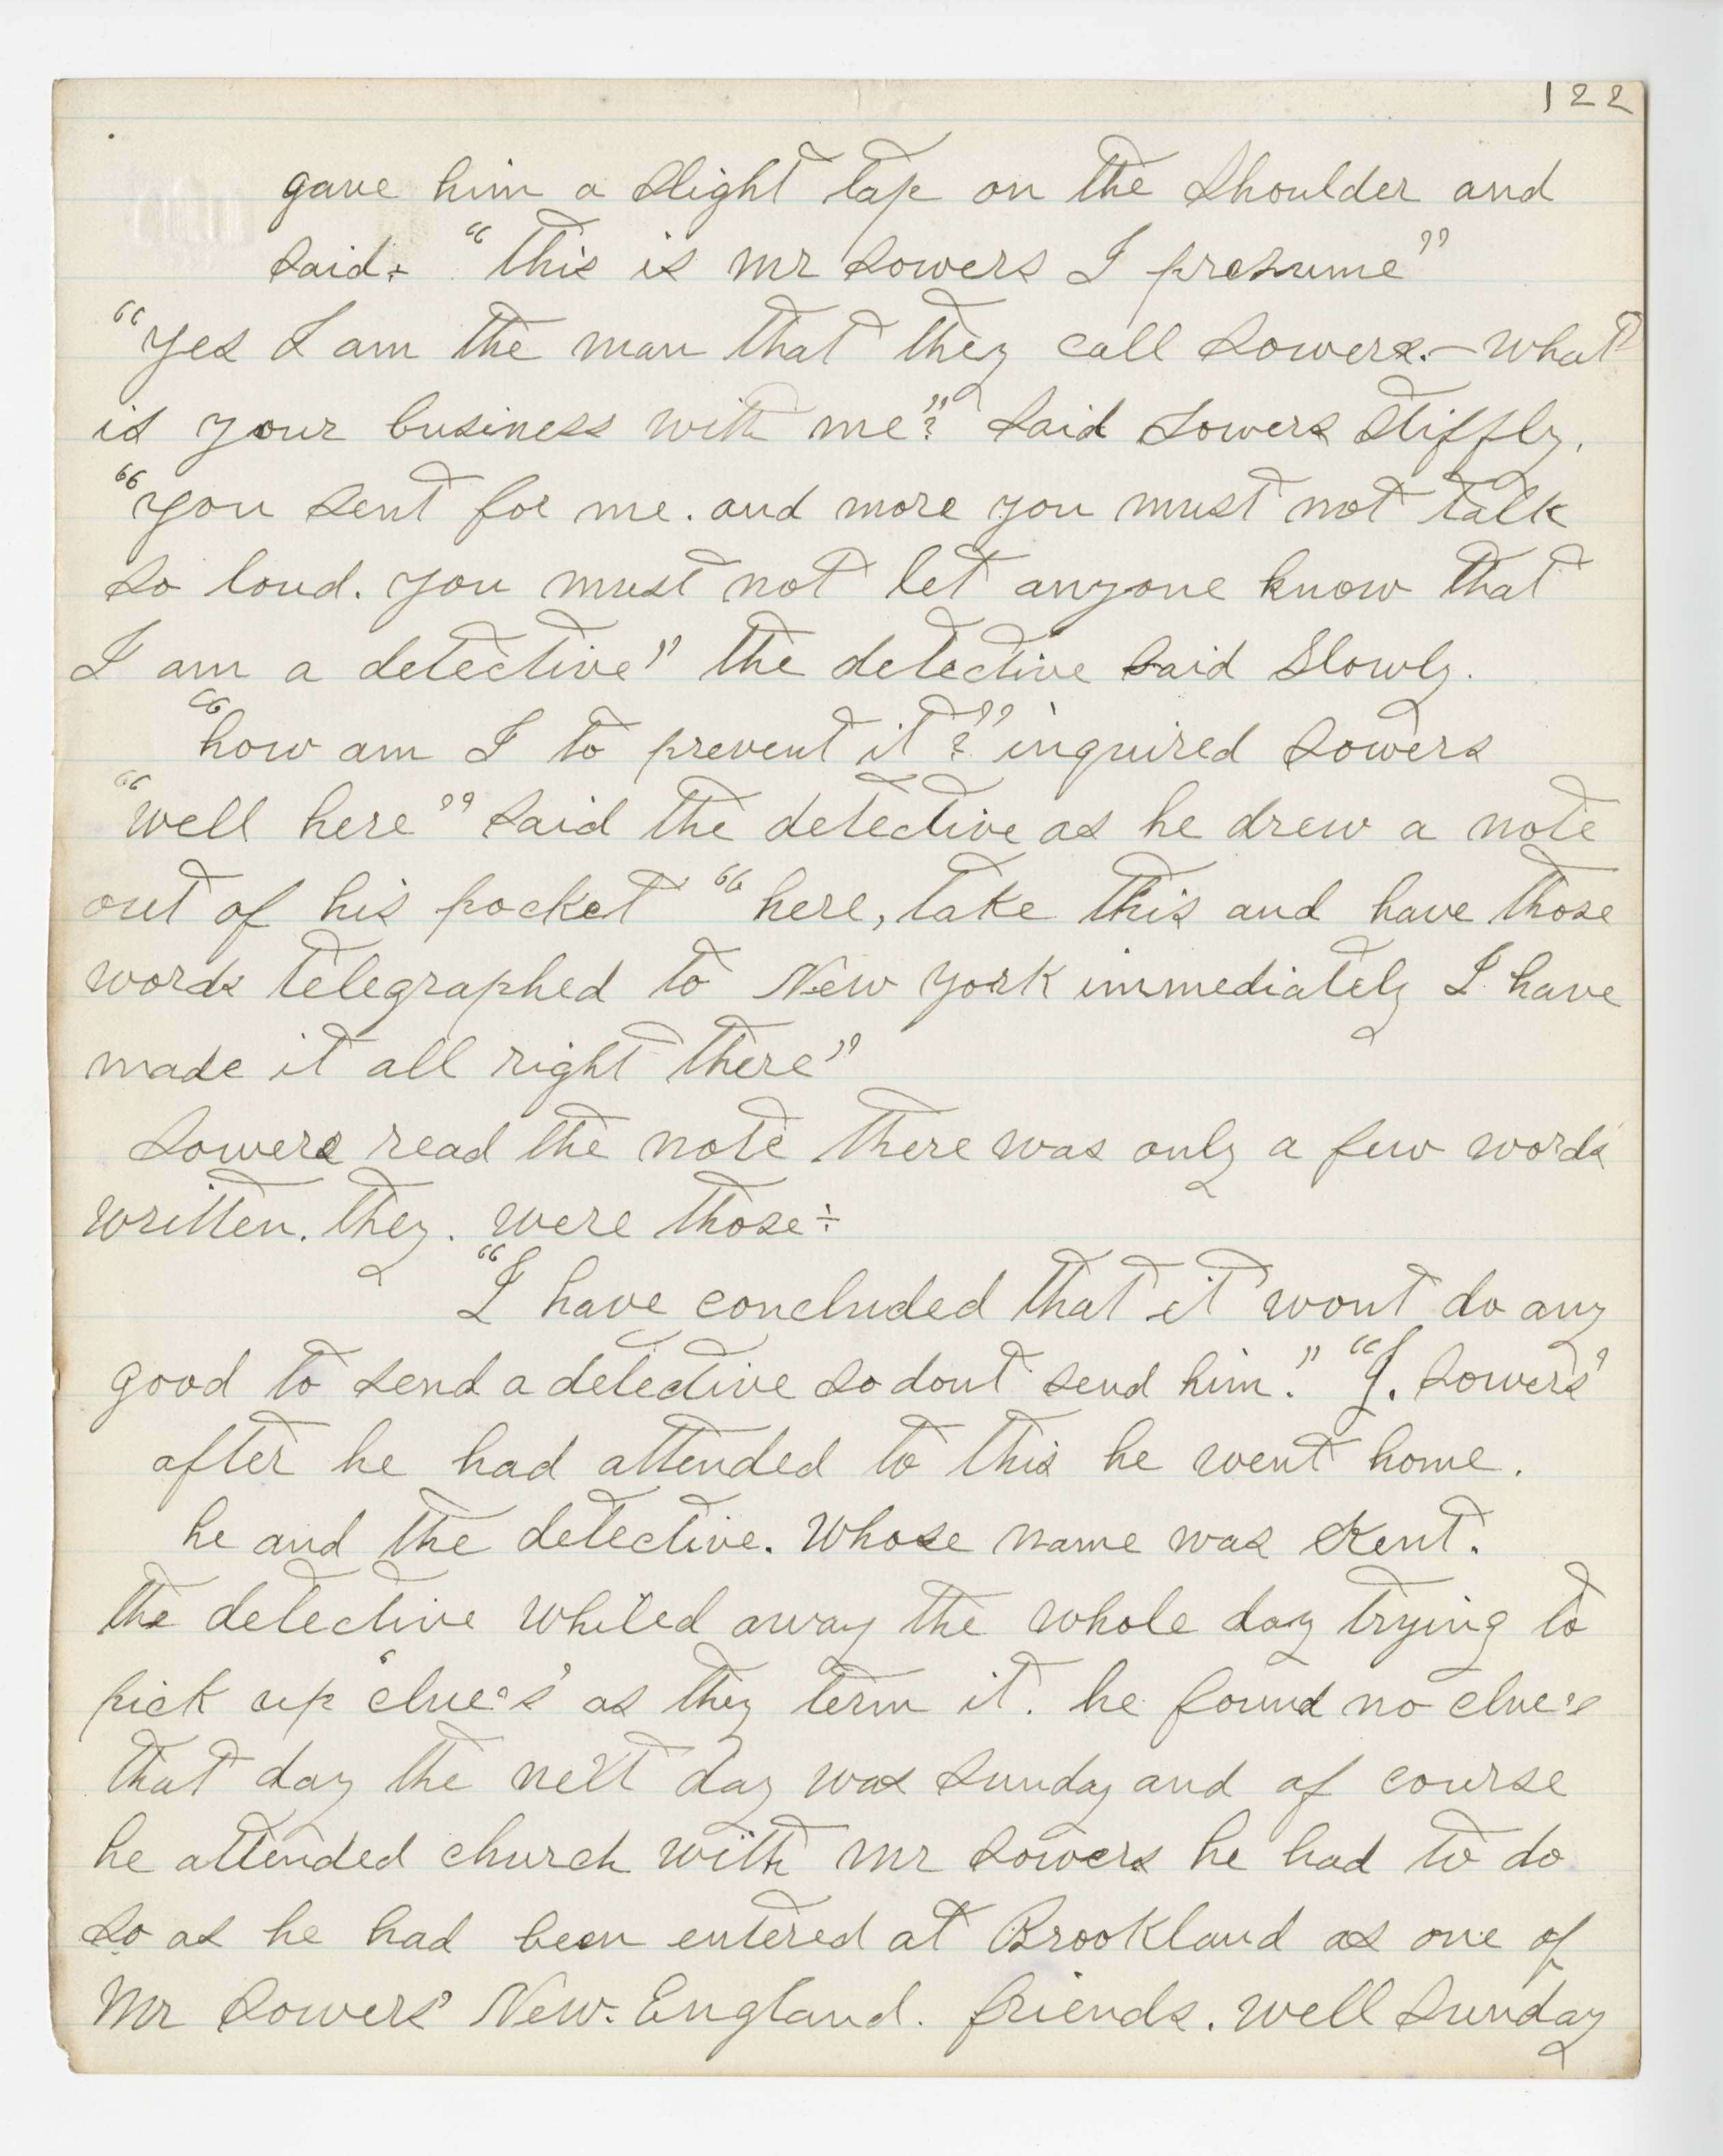 122
gave him a slight tap on the shoulder and
said÷ "this is mr Sowers I presume"
"yes I am the man that they call Sowers.— what
is your business with me"? said Sowers stiffly.
"you sent for me. and more you must not talk
so loud. you must not let anyone know that
I am a detective" the detective said slowly.
"how am I to prevent it?" inquired Sowers
"well here" said the detective as he drew a note
out of his pocket "here, take this and have those
words telegraphed to New york immediately I have
made it all right there"
Sowers read the note there was only a few words
written. they. were those÷
"I have concluded that it wont do any
good to send a detective so dont send him." "J. Sowers"
after he had attended to this he went home.
he and the detective. whose name was Kent.
the detective whiled away the whole day trying to
pick up 'clue's' as they term it. he found no clue's
that day the next day was sunday and of course
he attended church with mr Sowers he had to do
so as he had been entered at Brookland as one of
Mr Sowers' New. England. friends. well sunday